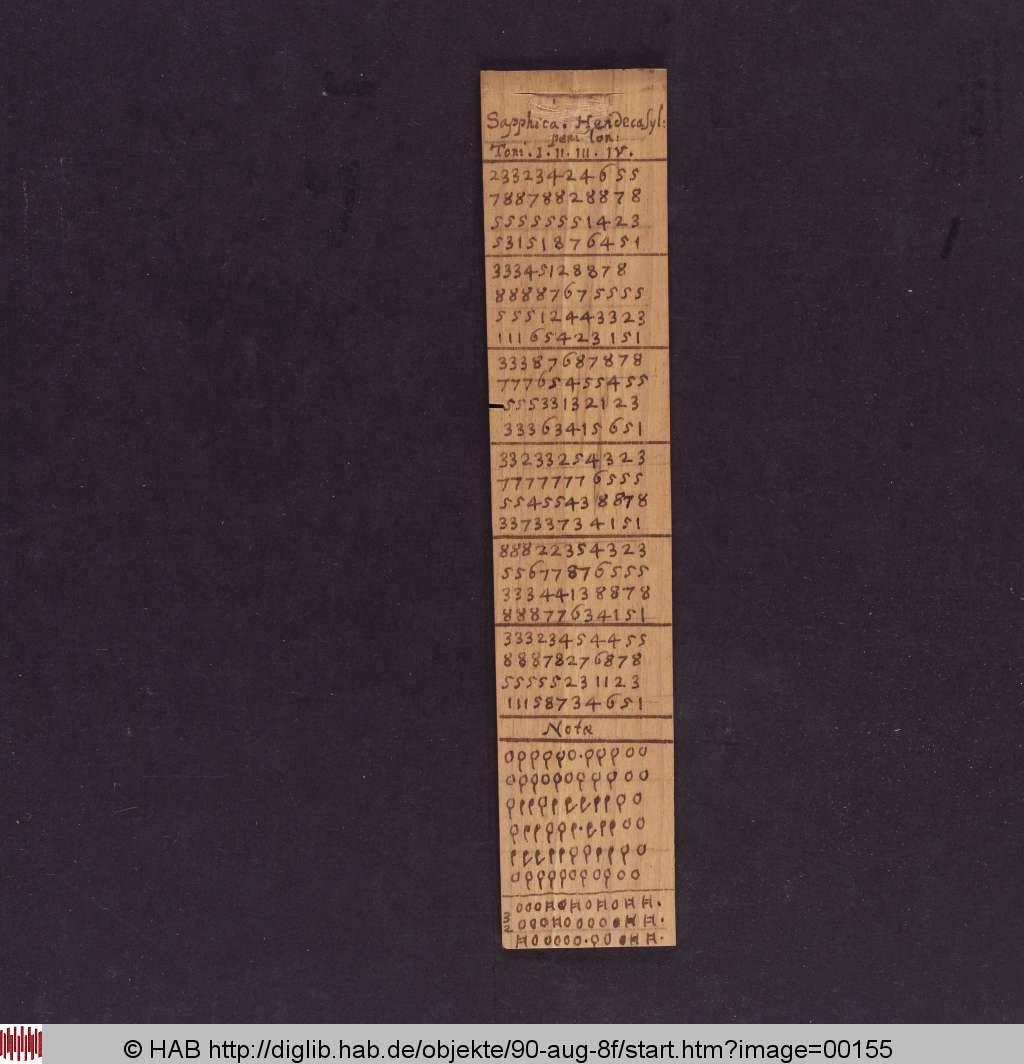 Sapphica. Hendecasyl:
peni ton:
Toni. I. II. III. IV.
23323424655
78878828878
55555551423
53151876451
33345128878
88887675555
55512443323
11165423151
33387687878
77765455455
55533132123
33363415651
33233254323
77777776555
55455438878
33733734151
88822354323
55677876555
33344138878
88877634151
33323454455
88878276878
55555231123
11158734651
Notæ
3
2
© HAB http://diglib.hab.de/objekte/90-aug-8f/start.htm?image=00155